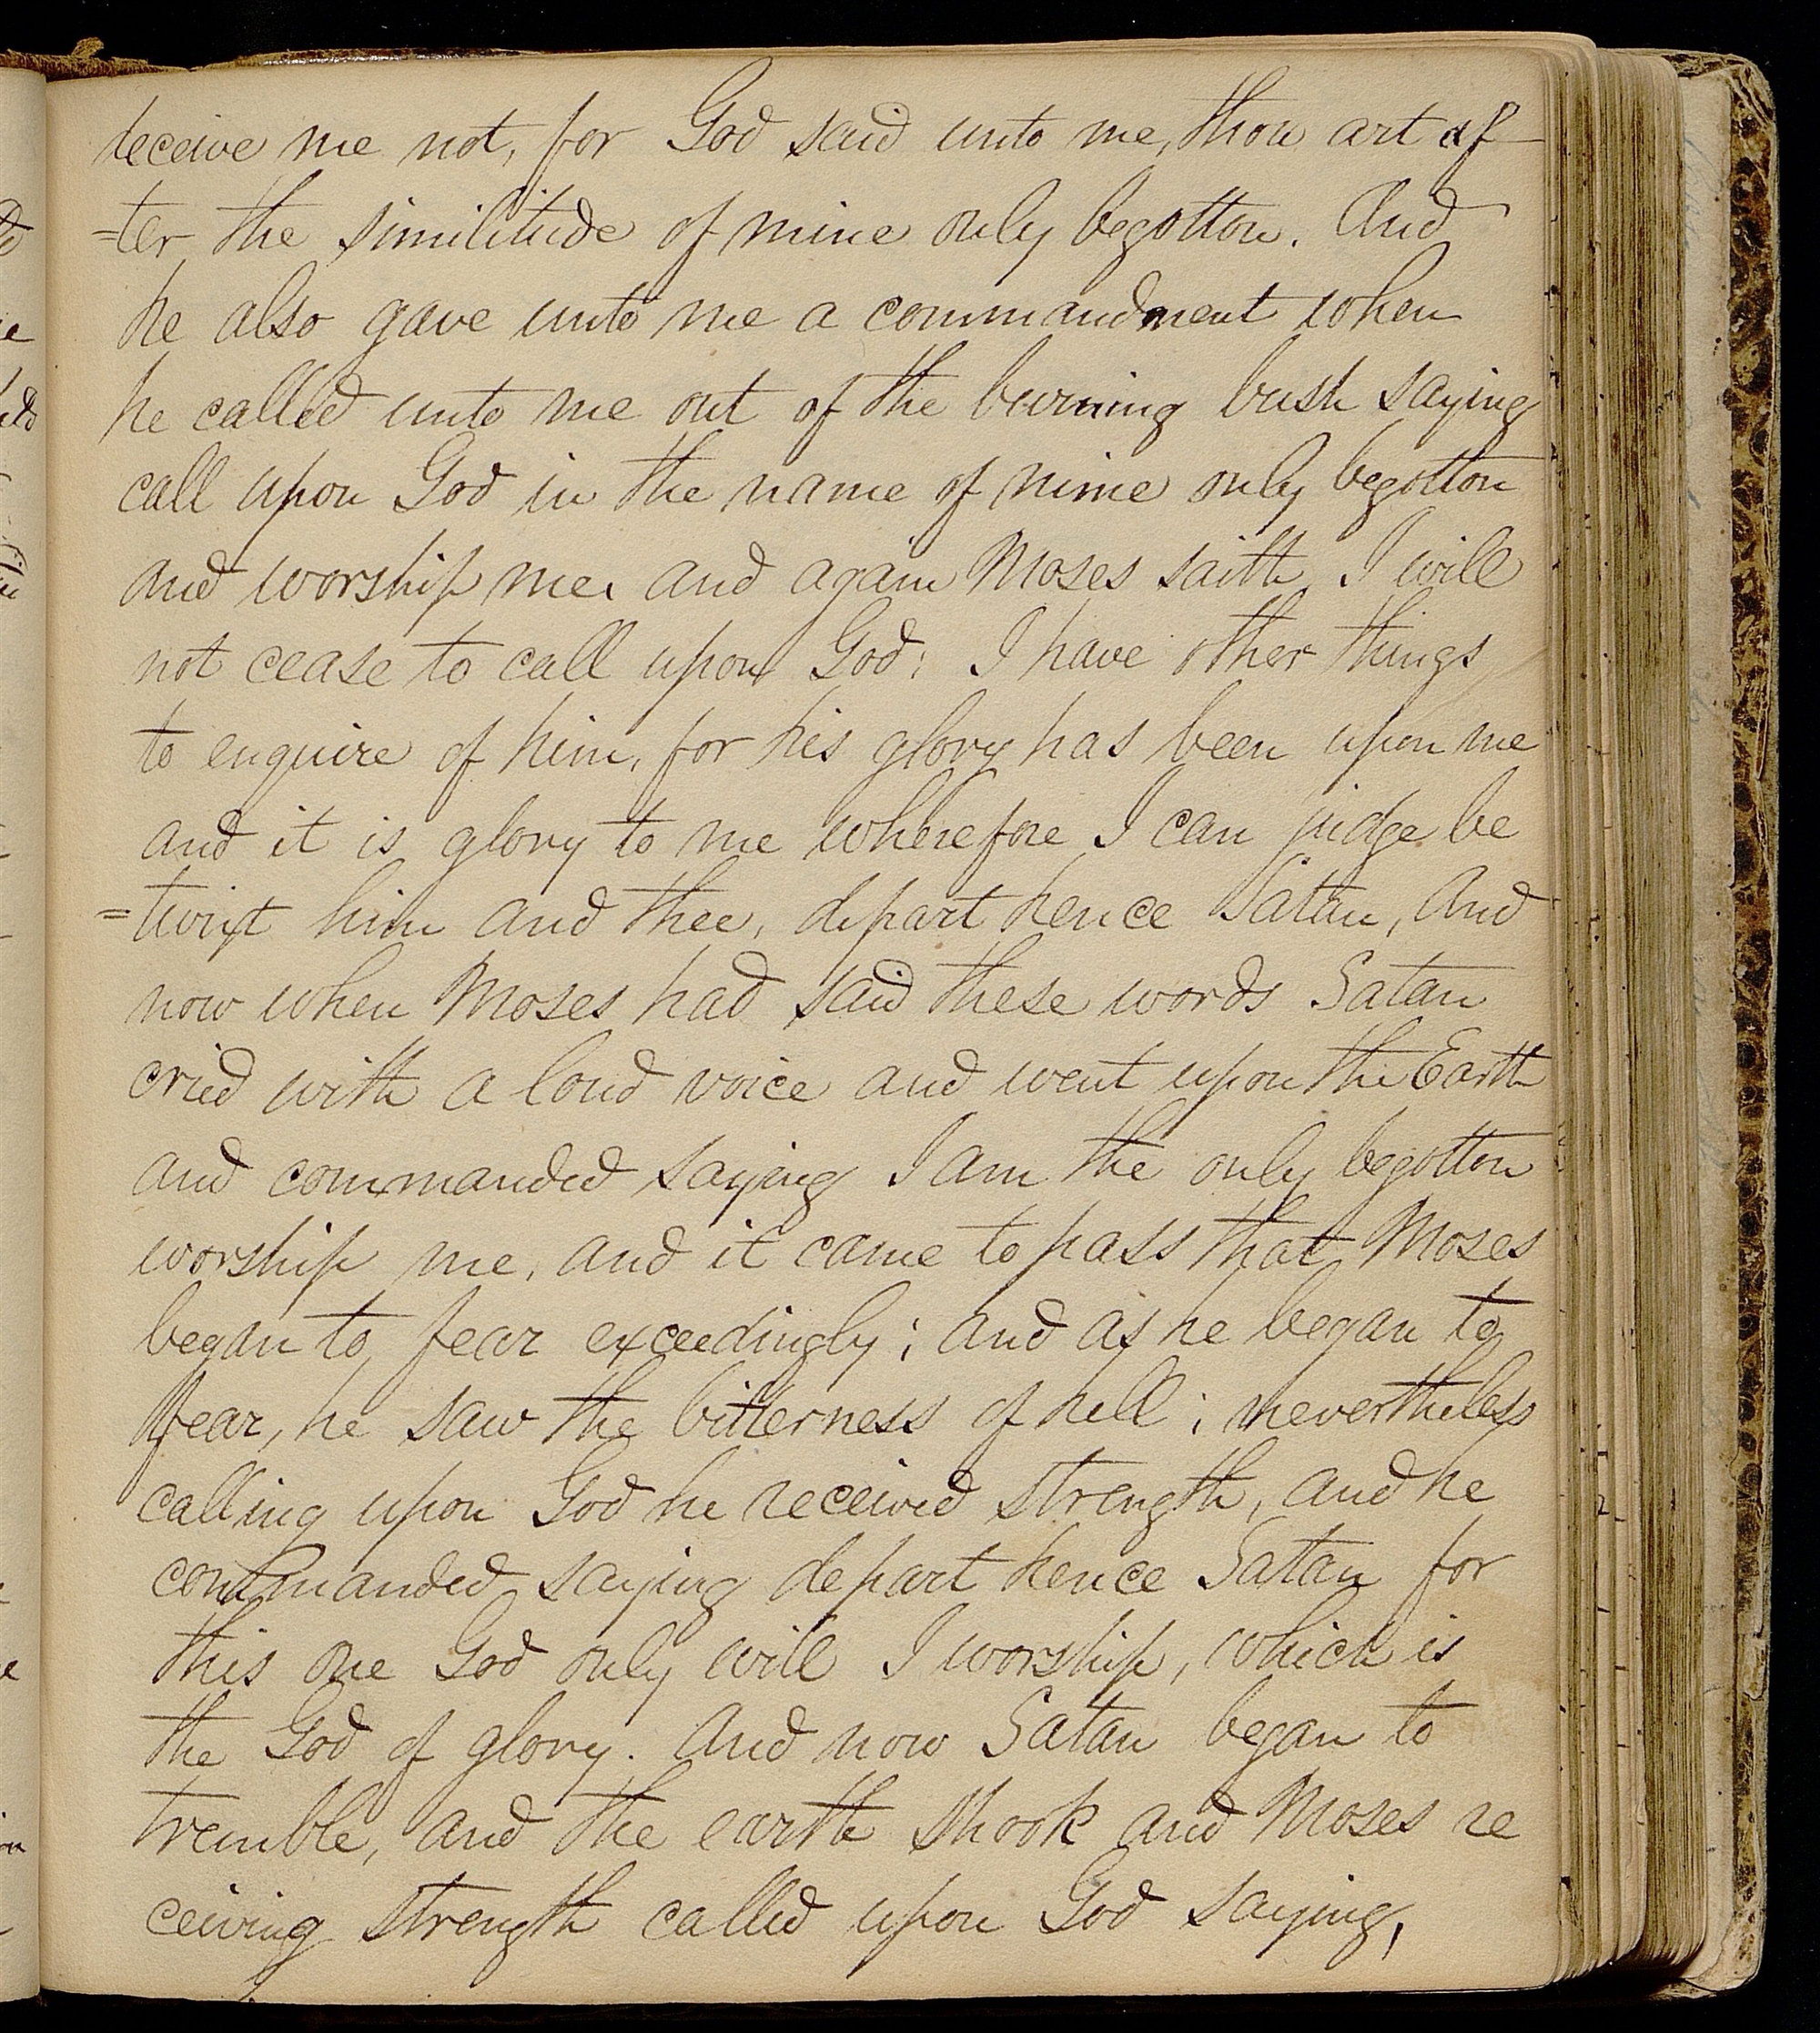 deceive me not, for God said unto me, thou art af
=ter the similitude of mine only begotton. And
he also gave unto me a commandment when
he called unto me out of the burning bush saying
call upon God in the name of mine only begotton
and worship me. and again Moses saith I will
not cease to call upon God: I have other things
to enquire of him, for his glory has been upon me
and it is glory to me wherefore I can judge be
=twixt him and thee, depart hence Satan, And
now when Moses had said these words Satan
cried with a loud voice and went upon the Earth
and commanded saying I am the only begotton
worship me, and it came to pass that Moses
began to fear exceedingly; and as he began to
fear, he saw the bitterness of hell; nevertheless
calling upon God he received strength, and he
commanded saying depart hence Satan for
this one God only will I worship, which is
the God of glory. And now Satan began to
tremble, and the earth shook and Moses re
ceiving strength called upon God saying,